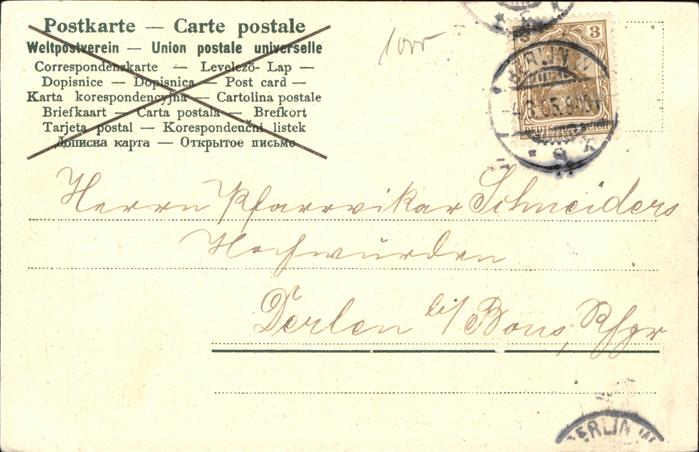 Postkarte — Carte postale
Weltpostverein — Union postale universelle
Correspondenzkarte — Levelező-Lap —
Dopisnice — Dopisnica — Post card —
Karta korespondencyjna — Cartolina postale
Briefkaart — Carta postala — Brefkort
Tarjeta postal — Korespondenčni listek
Дописна карта — Открытое письмо
3 3
BERLIN W
DEUTSCHES REICH
8
Herrn Pfarrvikar Schneiders
Hochwürden
Derlen b/ Bous, Rhpr
BERLIN W